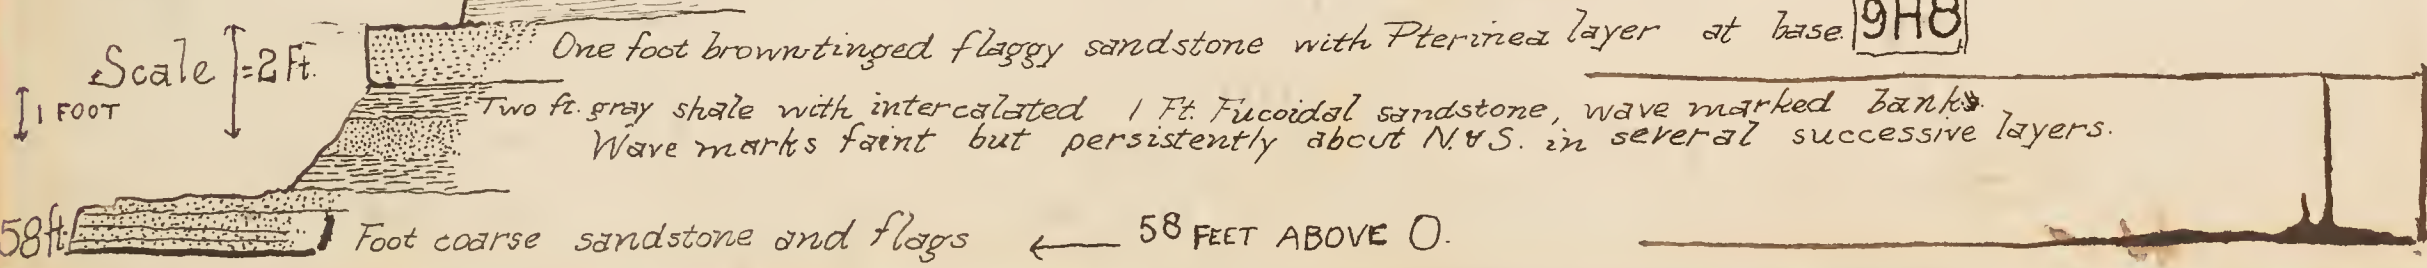 One foot brown-tinged flaggy sandstone with Pterinea layer at base. 9H8
Scale = 2 Ft.
1 FOOT
Two ft. gray shale with intercalated 1 Ft. Fucoidal sandstone, wave marked banks.
Wave marks faint but persistently about N. & S. in several successive layers.
58ft.
1 Foot coarse sandstone and flags ← 58 FEET ABOVE O.